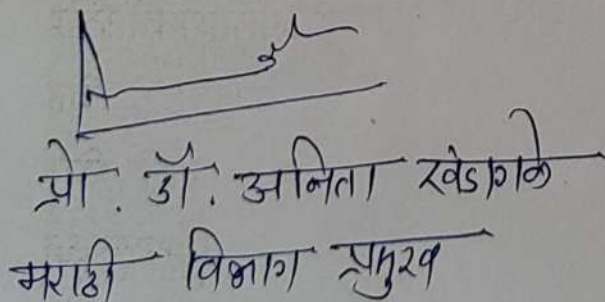 प्रो. डॉ. अनिता खेडगके
मराठी विभाग प्रमुख